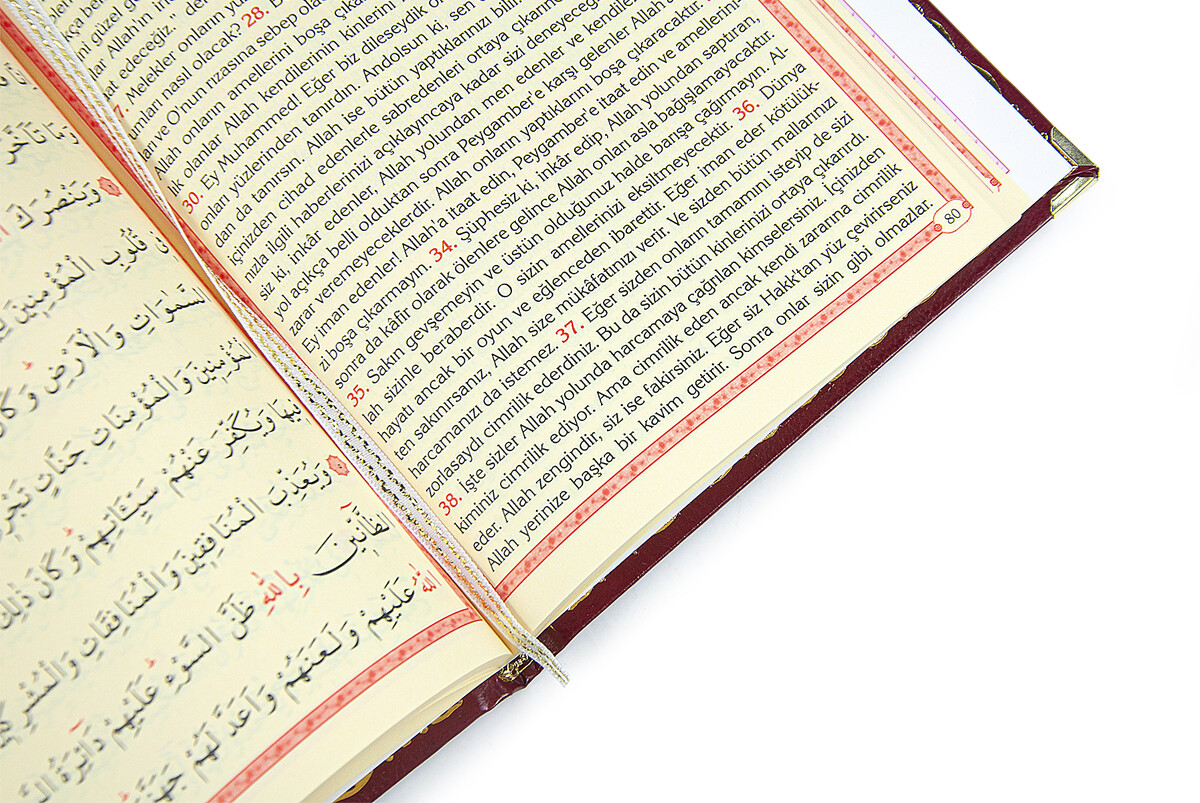 ni güzel
Allah'ın
at edeceğiz.„
7. Melekler onların
umları nasıl olacak? 28.
ve O'nun rızasına sebep
Allah onların amellerini boşa
lik olanlar Allah kendilerinin kinlerini
30. Ey Muhammed! Eğer biz dileseydik
onları yüzlerinden tanırdın. Andolsun ki, sen
dan da tanırsın. Allah ise bütün yaptıklarınızı
içinizden cihad edenlerle sabredenleri ortaya
nızla ilgili haberlerinizi açıklayıncaya kadar sizi
siz ki, inkâr edenler, Allah yolundan men edenler ve
yol açıkça belli olduktan sonra Peygamber'e karşı gelenler
zarar veremeyeceklerdir. Allah onların yaptıklarını boşa çıkaracaktır.
Ey iman edenler! Allah'a itaat edin, Peygamber'e itaat edin ve amellerini-
zi boşa çıkarmayın. 34. Şüphesiz ki, inkâr edip, Allah yolundan saptıran,
sonra da kâfir olarak ölenlere gelince Allah onları asla bağışlamayacaktır.
35. Sakın gevşemeyin ve üstün olduğunuz halde barışa çağırmayın. Al-
lah sizinle beraberdir. O sizin amellerinizi eksiltmeyecektir. 36. Dünya
hayatı ancak bir oyun ve eğlenceden ibarettir. Eğer iman eder kötülük-
ten sakınırsanız, Allah size mükâfatınızı verir. Ve sizden bütün mallarınızı
harcamanızı da istemez. 37. Eğer sizden onların tamamını isteyip de sizi
zorlasaydı cimrilik ederdiniz. Bu da sizin bütün kinlerinizi ortaya çıkarırdı.
38. İşte sizler Allah yolunda harcamaya çağrılan kimselersiniz. İçinizden
kiminiz cimrilik ediyor. Ama cimrilik eden ancak kendi zararına cimrilik
eder. Allah zengindir, siz ise fakirsiniz. Eğer siz Hakk'tan yüz çevirirseniz
Allah yerinize başka bir kavim getirir. Sonra onlar sizin gibi olmazlar.
80
وَيَنْصُرَكَ
قُلُوبِ الْمُؤْمِنِينَ
السَّمٰوَاتِ وَالْاَرْضِ
الْمُؤْمِنِينَ وَالْمُؤْمِنَاتِ جَنَّاتٍ
وَيُكَفِّرَ عَنْهُمْ سَيِّئَاتِهِمْ وَكَانَ ذٰلِكَ
وَيُعَذِّبَ الْمُنَافِقِينَ وَالْمُنَافِقَاتِ
الظَّٓانِّينَ بِاللّٰهِ ظَنَّ السَّوْءِ عَلَيْهِمْ دَٓائِرَةُ
اللّٰهُ عَلَيْهِمْ وَلَعَنَهُمْ وَاَعَدَّ لَهُمْ